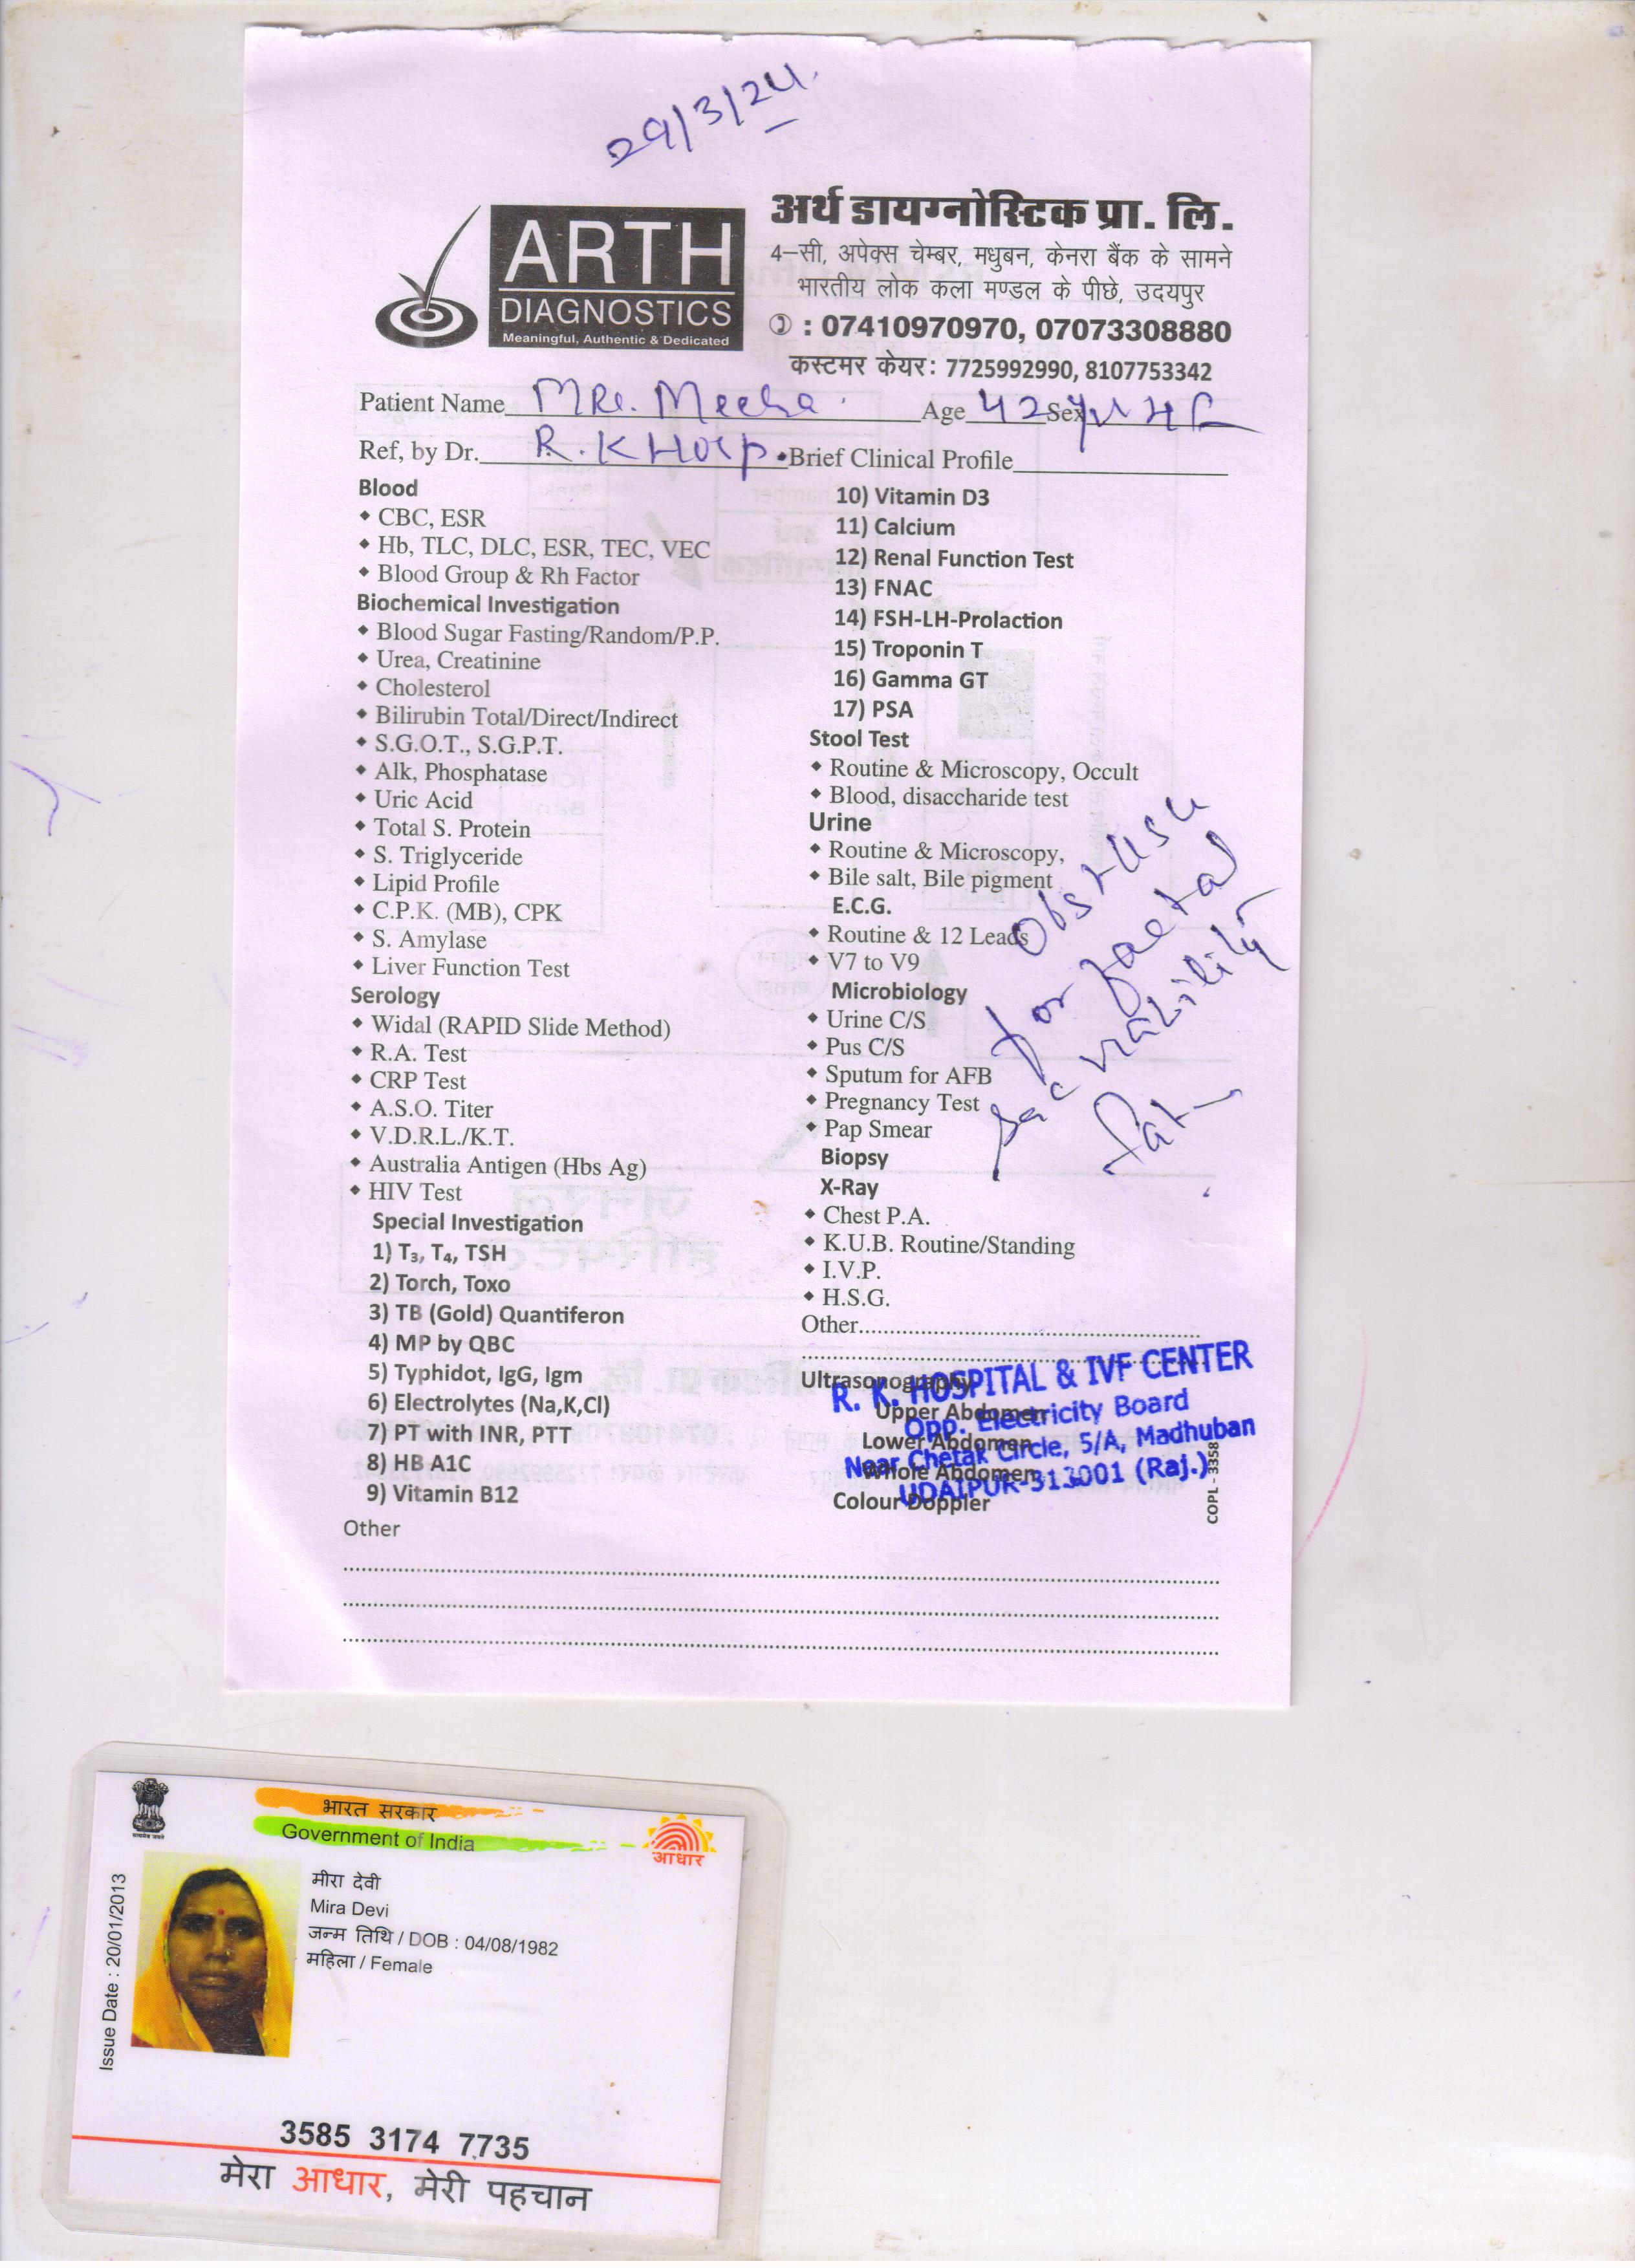 29/3/24
ARTH
DIAGNOSTICS
Meaningful, Authentic & Dedicated
अर्थ डायग्नोस्टिक प्रा. लि.
4–सी, अपेक्स चेम्बर, मधुबन, केनरा बैंक के सामने
भारतीय लोक कला मण्डल के पीछे, उदयपुर
: 07410970970, 07073308880
कस्टमर केयर: 7725992990, 8107753342
Patient Name Age 42 Sex
Ref, by Dr. R.K Hosp. Brief Clinical Profile
Blood
CBC, ESR
Hb, TLC, DLC, ESR, TEC, VEC
Blood Group & Rh Factor
Biochemical Investigation
Blood Sugar Fasting/Random/P.P.
Urea, Creatinine
Cholesterol
Bilirubin Total/Direct/Indirect
S.G.O.T., S.G.P.T.
Alk, Phosphatase
Uric Acid
Total S. Protein
S. Triglyceride
Lipid Profile
C.P.K. (MB), CPK
S. Amylase
Liver Function Test
Serology
Widal (RAPID Slide Method)
R.A. Test
CRP Test
A.S.O. Titer
V.D.R.L./K.T.
Australia Antigen (Hbs Ag)
HIV Test
Special Investigation
1) T₃, T₄, TSH
2) Torch, Toxo
3) TB (Gold) Quantiferon
4) MP by QBC
5) Typhidot, IgG, Igm
6) Electrolytes (Na,K,Cl)
7) PT with INR, PTT
8) HB A1C
9) Vitamin B12
Other
10) Vitamin D3
11) Calcium
12) Renal Function Test
13) FNAC
14) FSH-LH-Prolaction
15) Troponin T
16) Gamma GT
17) PSA
Stool Test
Routine & Microscopy, Occult
Blood, disaccharide test
Urine
Routine & Microscopy,
Bile salt, Bile pigment
E.C.G.
Routine & 12 Leads
V7 to V9
Microbiology
Urine C/S
Pus C/S
Sputum for AFB
Pregnancy Test
Pap Smear
Biopsy
X-Ray
Chest P.A.
K.U.B. Routine/Standing
I.V.P.
H.S.G.
Other
Ultrasonography
Upper Abdomen
Lower Abdomen
Whole Abdomen
Colour Doppler
COPL - 3358
for faetal
sac viability
R. K. HOSPITAL & IVF CENTER
Opp. Electricity Board
Near Chetak Circle, 5/A, Madhuban
UDAIPUR-313001 (Raj.)
भारत सरकार
Government of India
आधार
Issue Date : 20/01/2013
मीरा देवी
Mira Devi
जन्म तिथि / DOB : 04/08/1982
महिला / Female
3585 3174 7735
मेरा आधार, मेरी पहचान